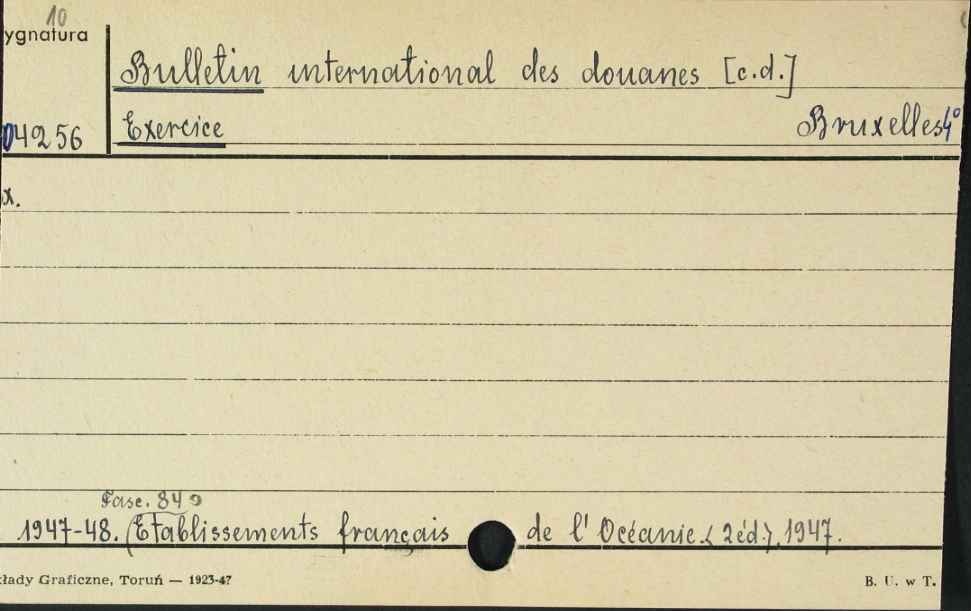 10
ygnatura
Bulletin international des douanes [c.d.]
04256 Exercice Bruxelles 4°
x.
Fasc. 84
1947-48. (Etablissements français de l'Océanie. (2éd.), 1947.
kłady Graficzne, Toruń — 1923-47 B. U. w T.